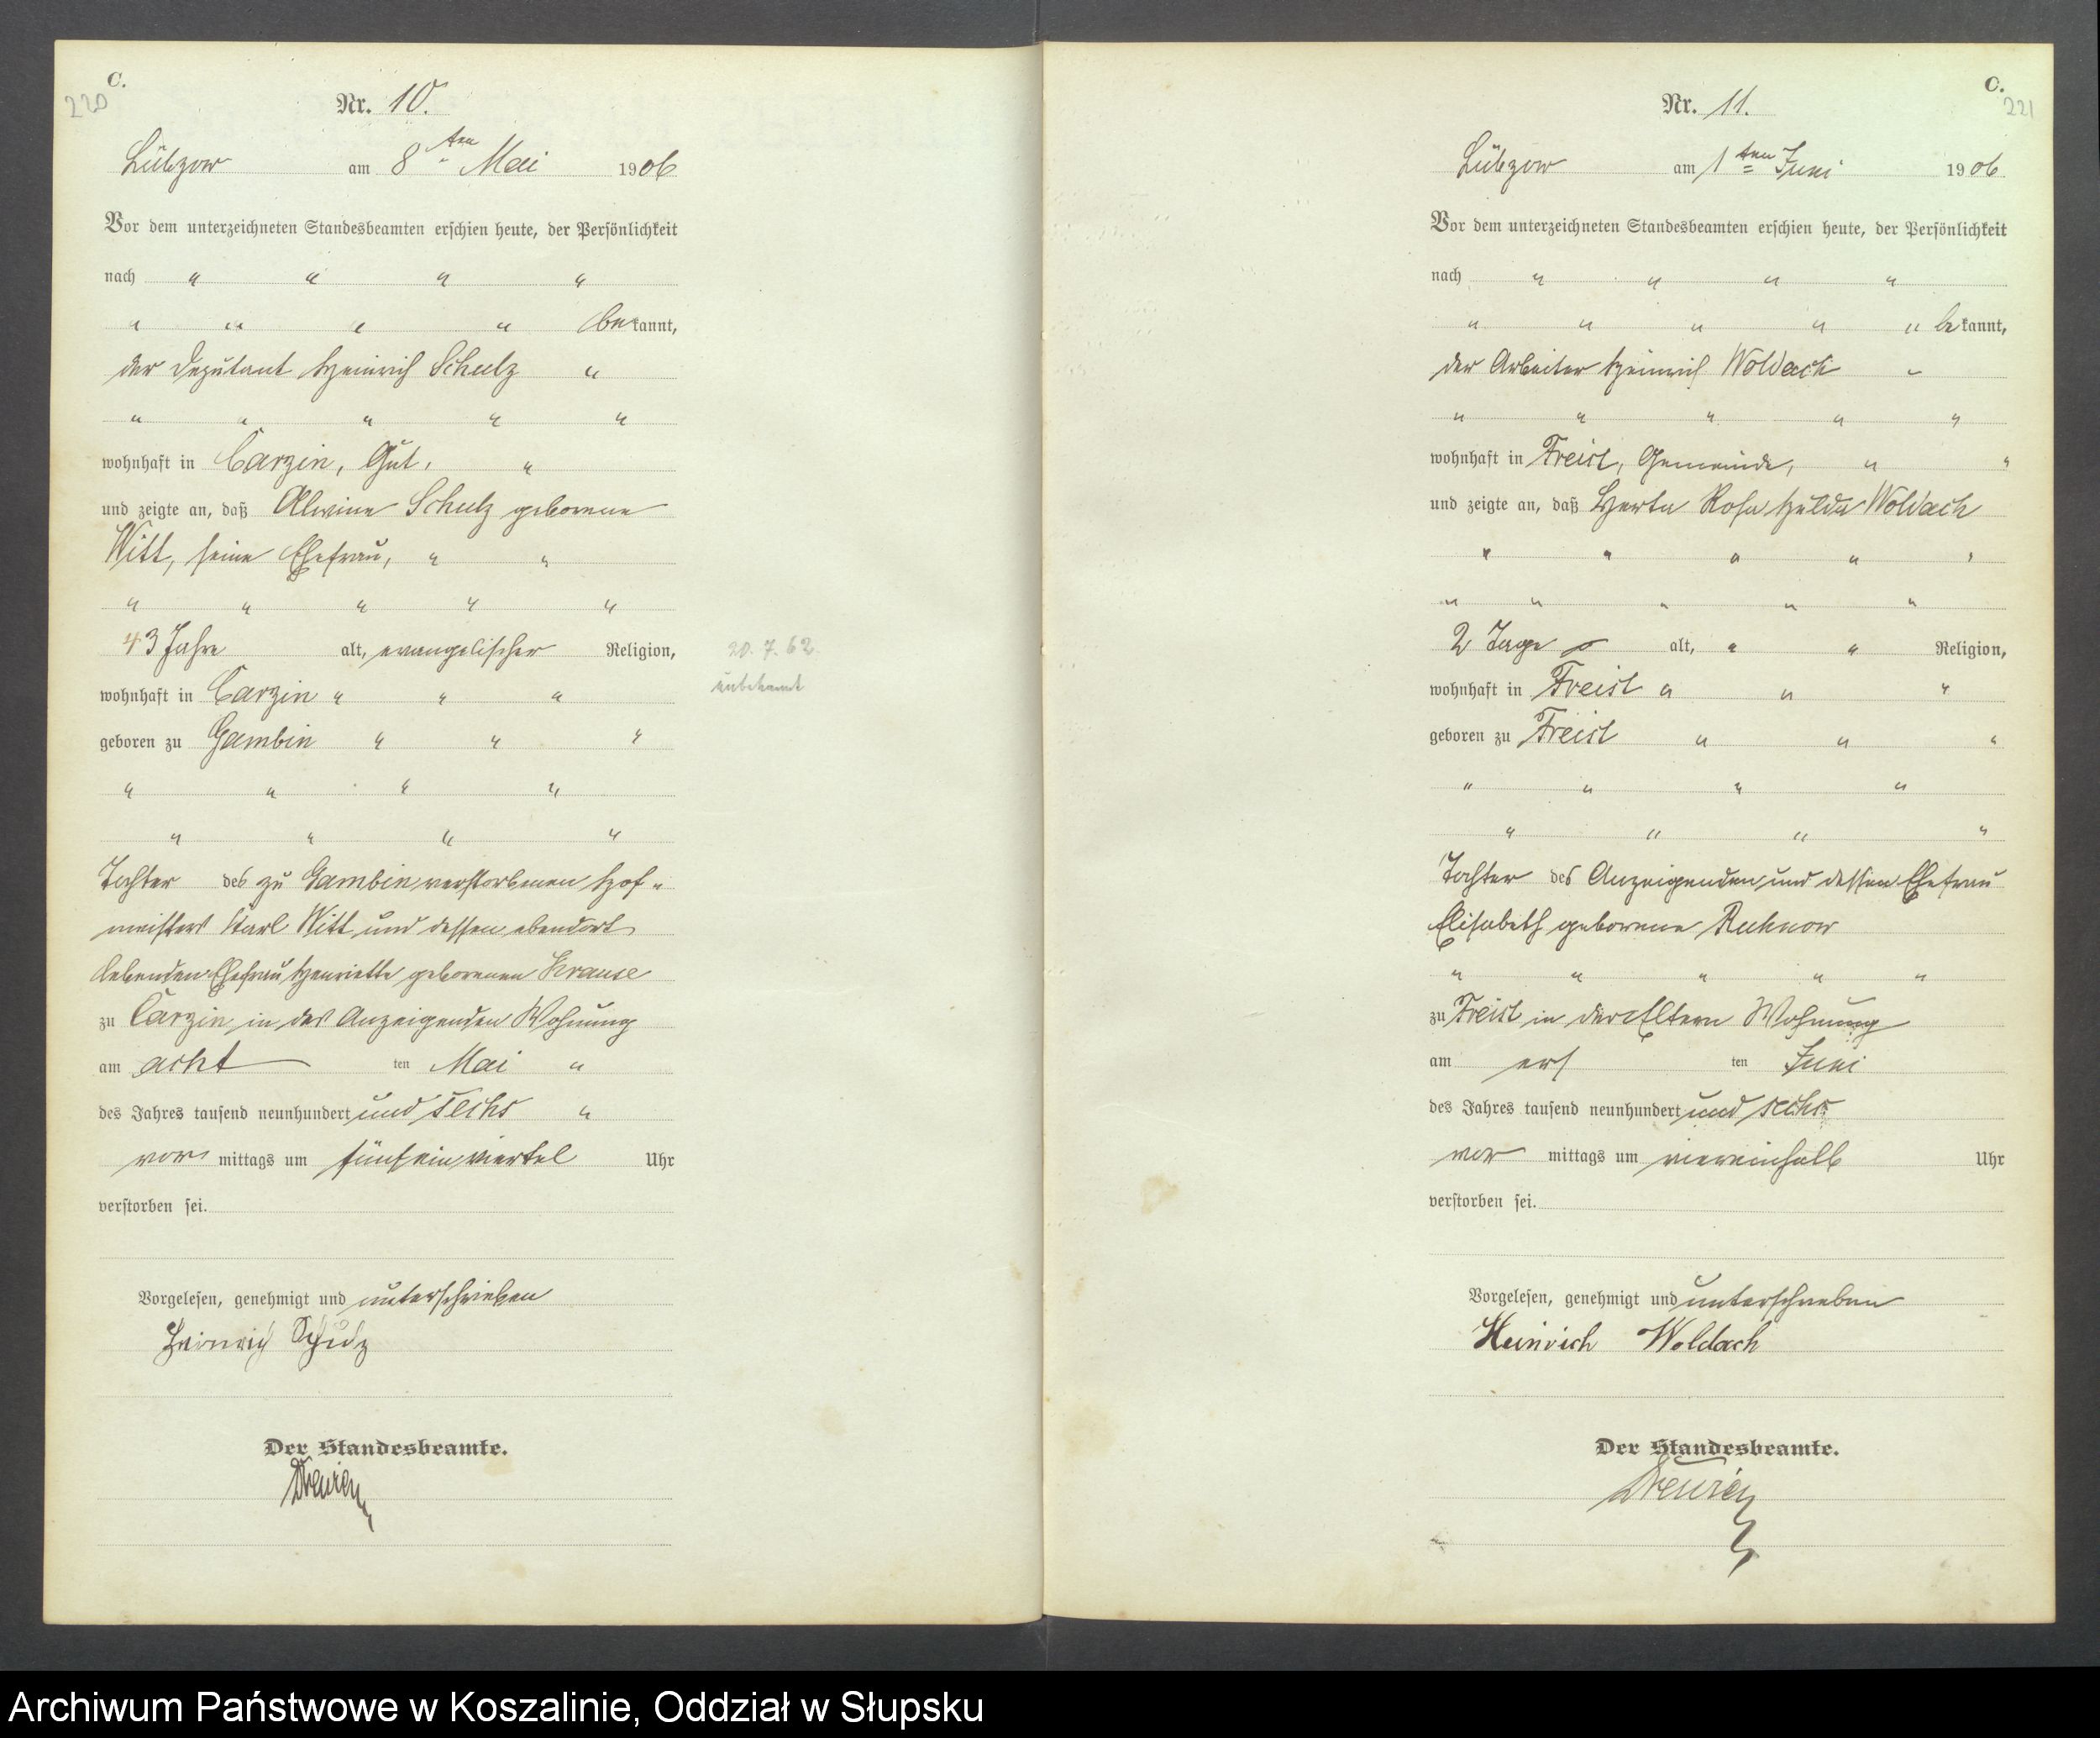 C.
220
Nr. 10.
Lübzow am 8ten Mai 1906
Vor dem unterzeichneten Standesbeamten erschien heute, der Persönlichkeit
nach " " " "
" " " " bekannt,
der Deputant Heinrich Schulz "
" " " " "
wohnhaft in Carzin, Gut, "
und zeigte an, daß Alwine Schulz geborene
Witt, seine Ehefrau, " "
" " " " "
43 Jahre alt, evangelischer Religion,
20. 7. 62.
unbekannt
wohnhaft in Carzin " " "
geboren zu Gambin " " "
" " " "
" " " "
Tochter des zu Gambin verstorbenen Hof-
meisters Karl Witt und dessen ebendort
lebenden Ehefrau Henriette geborenen Krause
zu Carzin in des Anzeigenden Wohnung
am acht ten Mai "
des Jahres tausend neunhundert und sechs "
vor mittags um fünfeinviertel Uhr
verstorben sei.
Vorgelesen, genehmigt und unterschrieben
Heinrich Schulz
Der Standesbeamte.
C.
221
Nr. 11.
Lübzow am 1ten Juni 1906
Vor dem unterzeichneten Standesbeamten erschien heute, der Persönlichkeit
nach " " " "
" " " " " bekannt,
der Arbeiter Heinrich Woldach "
" " " " "
wohnhaft in Freist, Gemeinde, " "
und zeigte an, daß Herta Rosa Hulda Woldach
" " " " "
" " " " "
2 Tage alt, " " Religion,
wohnhaft in Freist " " "
geboren zu Freist " " "
" " " "
" " " "
Tochter des Anzeigenden und dessen Ehefrau
Elisabeth geborene Ruhnow
" " " " "
zu Freist in der Eltern Wohnung
am ers ten Juni
des Jahres tausend neunhundert und sechs
vor mittags um viereinhalb Uhr
verstorben sei.
Vorgelesen, genehmigt und unterschrieben
Heinrich Woldach
Der Standesbeamte.
Archiwum Państwowe w Koszalinie, Oddział w Słupsku